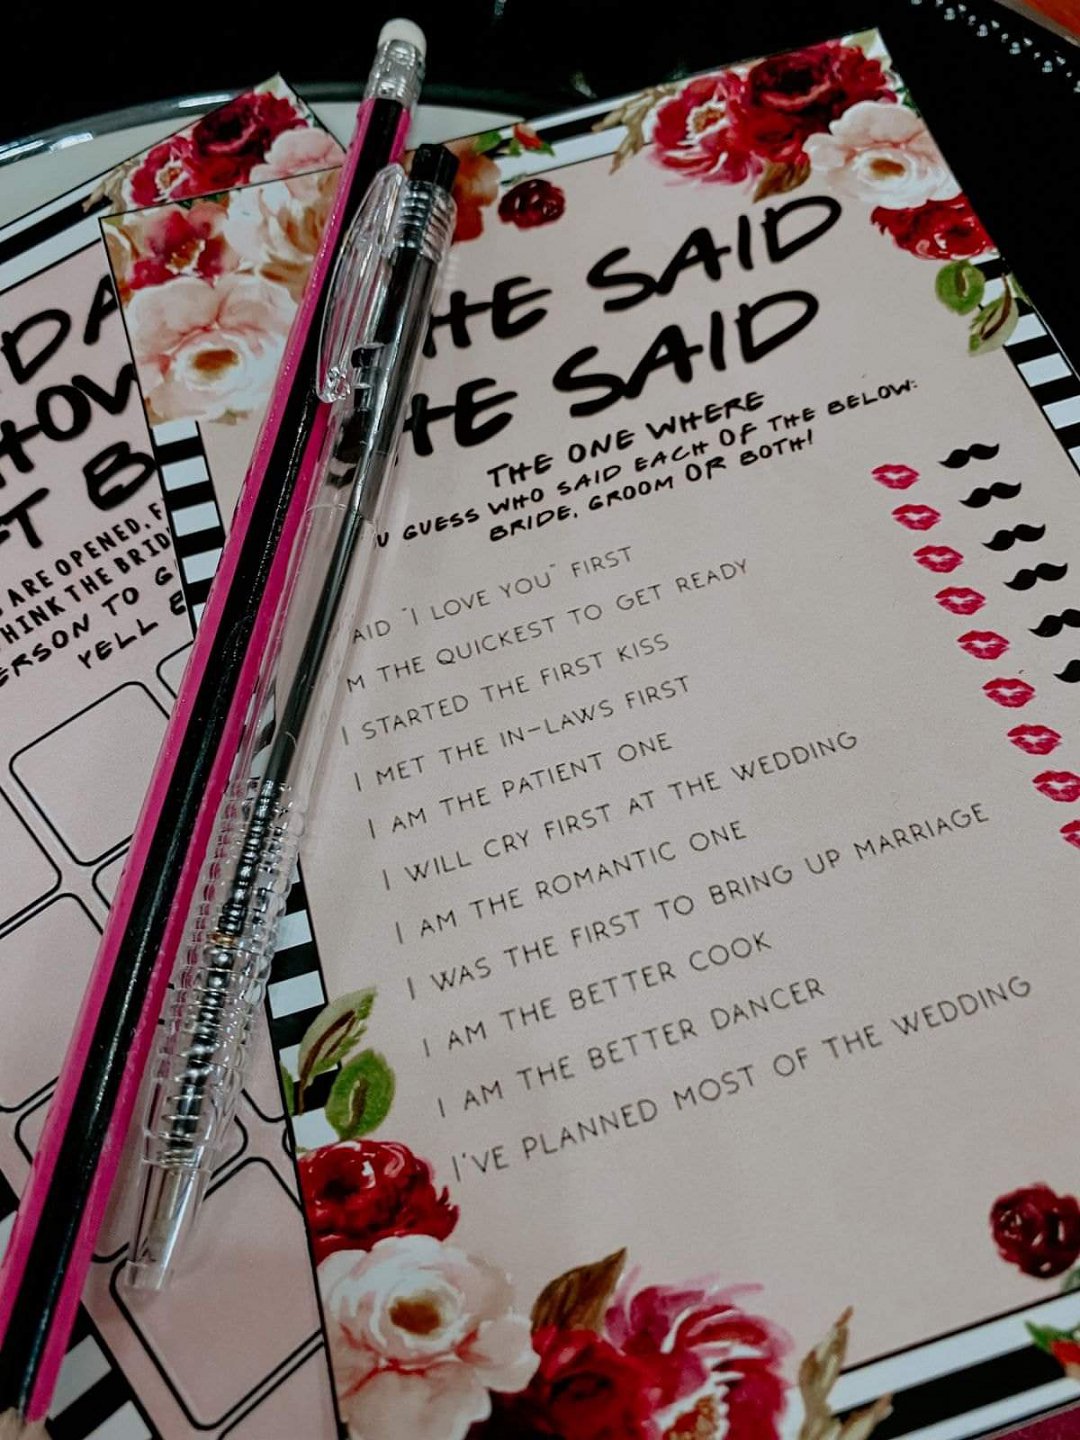 HE SAID
HE SAID
THE ONE WHERE
U GUESS WHO SAID EACH OF THE BELOW:
BRIDE, GROOM OR BOTH!
AID "I LOVE YOU" FIRST
M THE QUICKEST TO GET READY
I STARTED THE FIRST KISS
I MET THE IN-LAWS FIRST
I AM THE PATIENT ONE
I WILL CRY FIRST AT THE WEDDING
I AM THE ROMANTIC ONE
I WAS THE FIRST TO BRING UP MARRIAGE
I AM THE BETTER COOK
I AM THE BETTER DANCER
I'VE PLANNED MOST OF THE WEDDING
DA
HOW
FT B
ARE OPENED, F
HINK THE BRID
ERSON TO G
YELL B